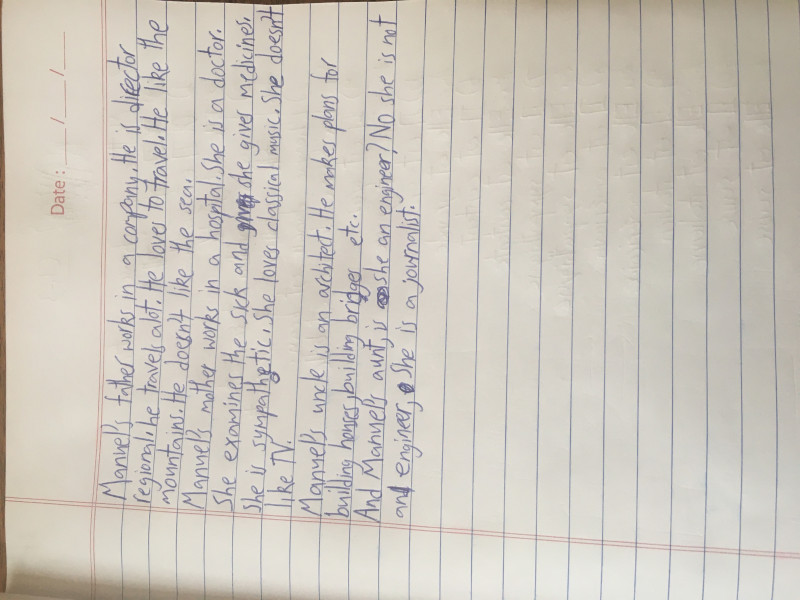 Date: __/__/__
Manuel's father works in a company. He is director
regional, he travels alot. He lovel to travel. He like the
mountains. He doesn't like the sea.
Manuel's mother works in a hospital. She is a doctor.
She examines the sick and she gives medicines.
She is sympathetic. She loves classical music. She doesn't
like TV.
Manuel's uncle is an architect. He makes plans for
building houses, building bridges etc.
And Manuel's aunt, is she an engineer? No she is not
an engineer, She is a journalist.